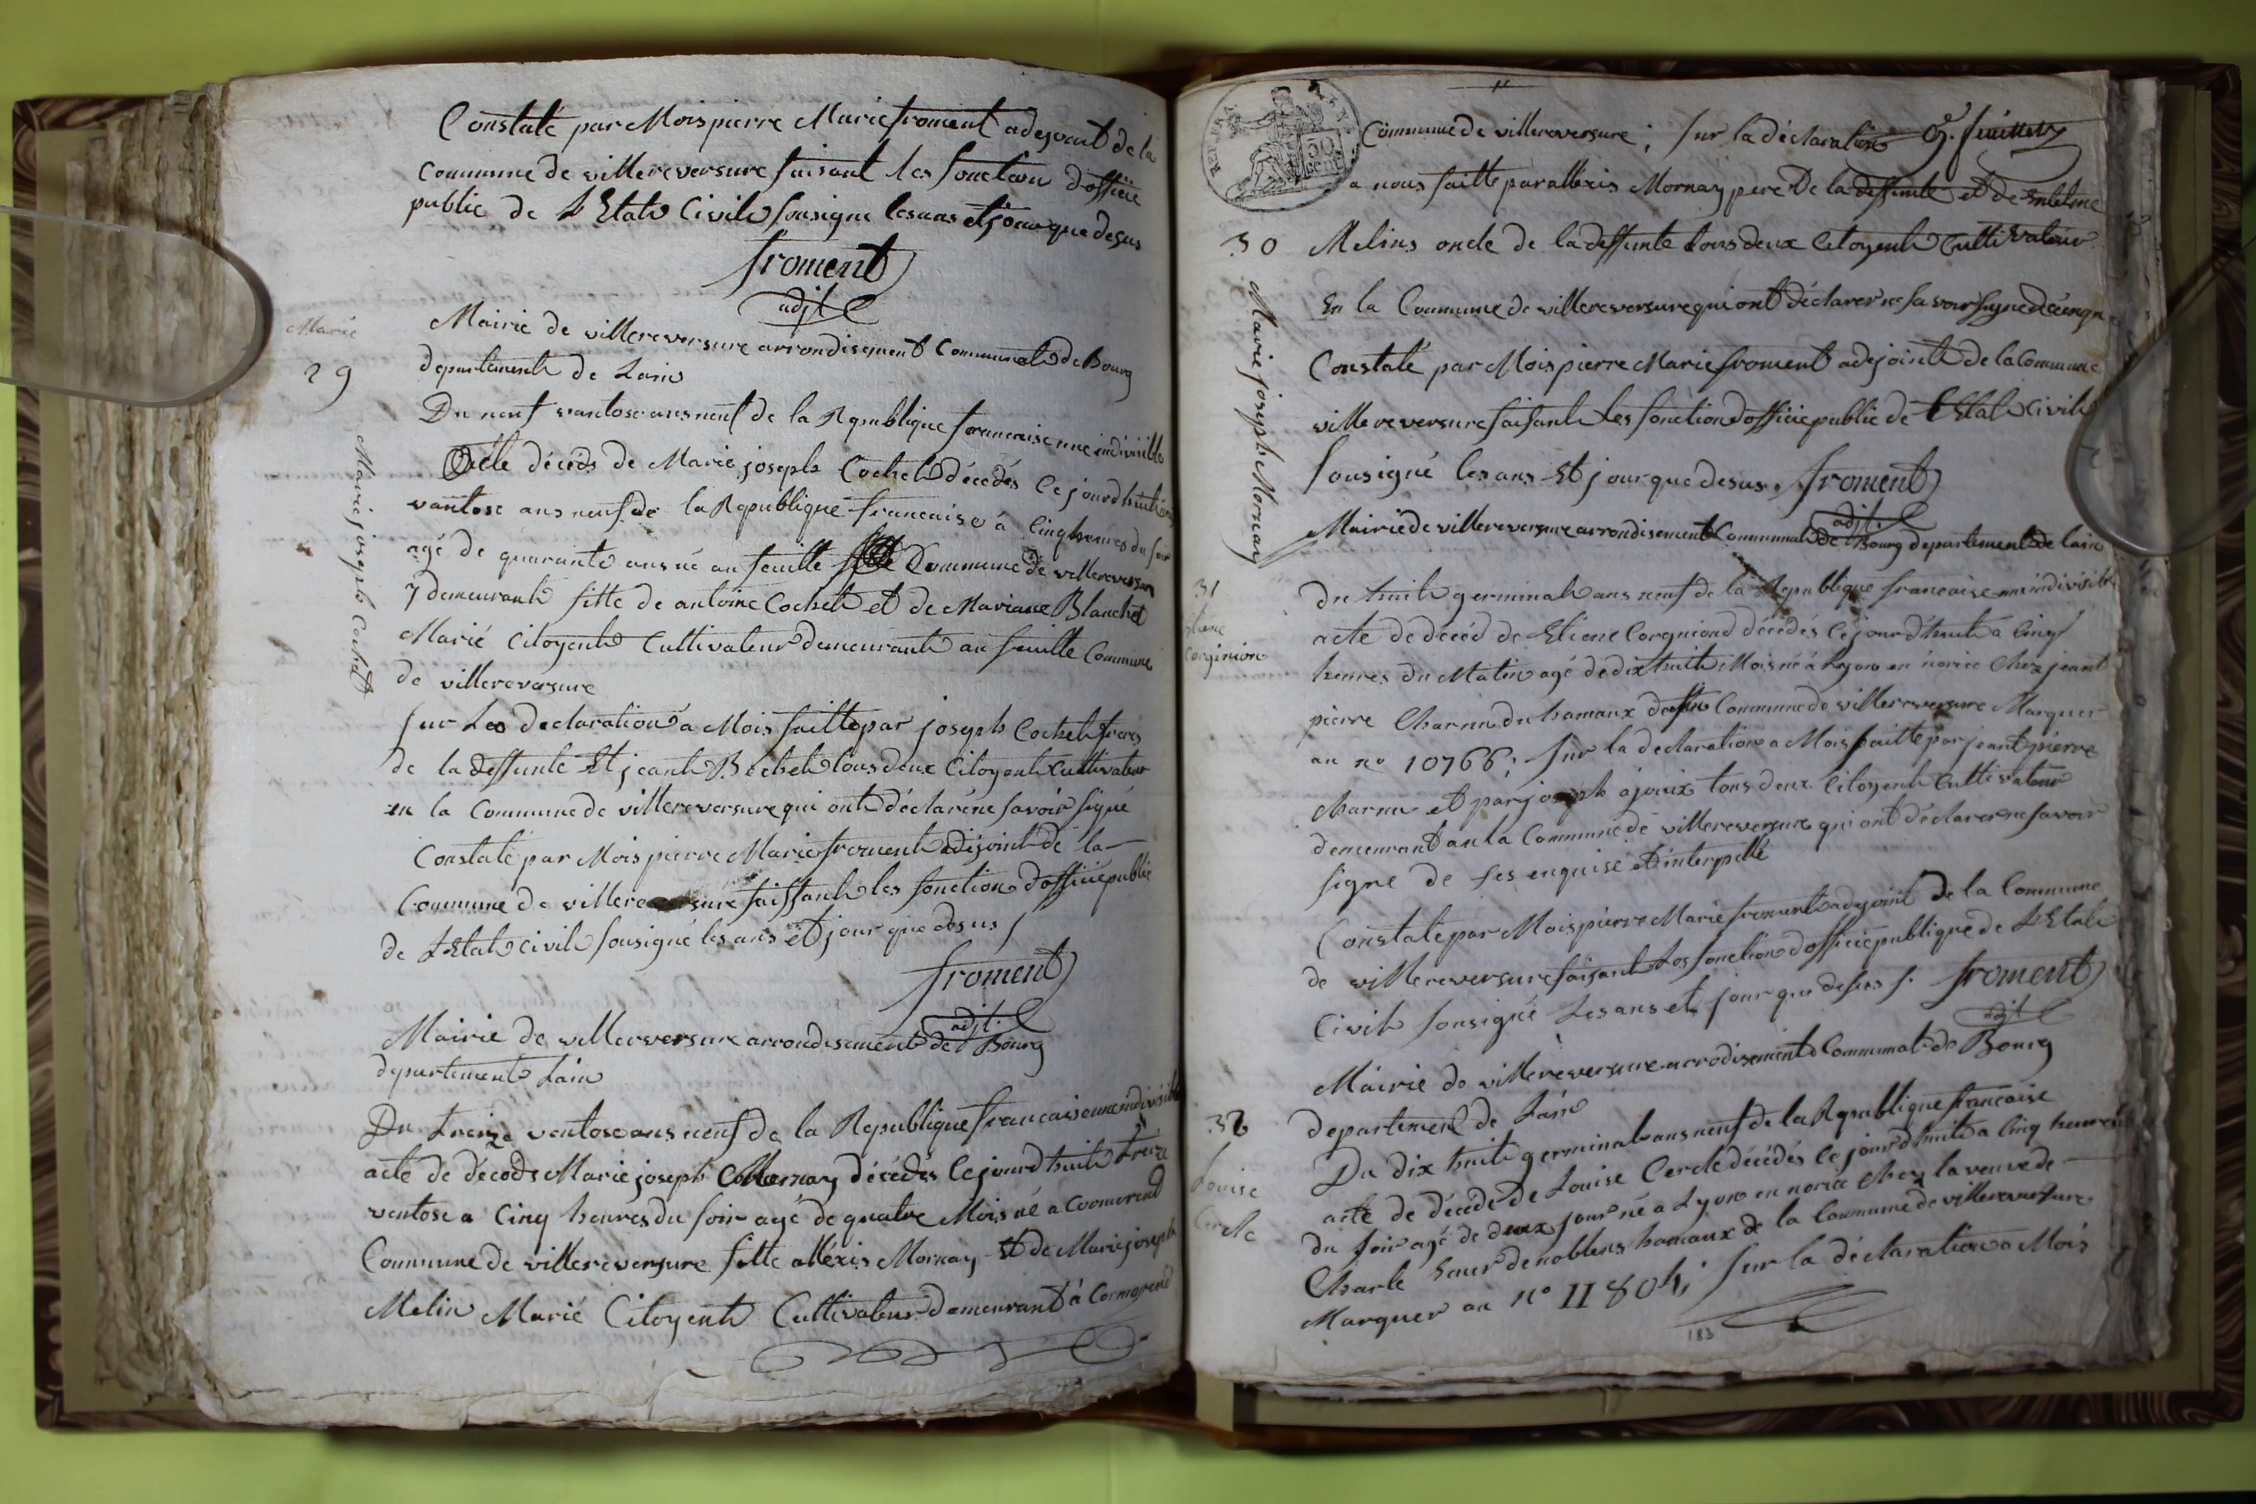 Constaté par Mois pierre Marie froment adejoent de la
Commune de villereversure faisant les fonction d'officie
public de L Etats Civile sousigne les ans et jour que desus
froment
adjt
Marie
29
Marie joseph Cochet
Mairie de villereversure arrondisement Communal de Bourg
departement de Lain
Du neuf vantose ans neuf de la Republique francaise une indivisible
Acte décéds de Marie joseph Cochet décédés le jourdhuit
vantose ans neuf de la Republique francaise à Cinq heures du soir
agé de quarante ans né au feuille Commune de villereversure
y demeurant fille de antoine Cochet et de Mariane Blanchet
Marié Citoyent Cultivateur demeurant au feuille Commune
de villereversure
sur Les declaration a Mois faitte par joseph Cochet frere
de la deffunte Et jeant Béchet tous deux Citoyent Cultivateur
en la Commune de villereversure qui ont déclaré ne savoir signé
Constaté par Mois pierre Marie froment adijoint de la
Commune de villereversure faissant les fonction d'officie public
de L Etat Civil sousigné les ans et jour que desus
froment
adjt.
Mairie de villereversure arrondisement de Bourg
departement Lain
Du treize ventose ans neuf de la Republique francaise une indivisible
acte de décods Marie joseph Mornay décédés le jourdhuit treize
ventose a Cinq heures du soir agé de quatre Mois né a Coomerend
Commune de villereversure fille alléxis Mornay Et de Marie joseph
Melin Marié Citoyent Cultivateur demeurant à Cormorend
Commune de villereversure ; sur la déclaration
a nous faitte par alléxis Mornay pere De la deffunte et de Enthelme
30 Melins oncle de la deffunte tous deux Citoyent Cultivateur
Marie joseph Mornay
En la Commune de villereversure qui ont déclarer ne savoir signe de
Constaté par Mois pierre Marie froment adejoint de la Commune
villereversure faisant les fonction d'officie public de L Etat Civile
sousigné les ans Et jour que desus. froment
adjt.
Mairie de villereversure arrondisement Communal de Bourg departement de Lain
31
Etiene
Corginion
du huit germinal ans neuf de la Republique francaise une indivisible
acte de decéd de Etiene Corgniond décédés le jourdhuit a Cinq
heures du Matin agé de dix huit Mois né à Lyon en norice Chez jeant
pierre Charnu du hamaux Commune de villereversure Marquer
au no 10766 ; sur la declaration a Mois faitte par jeant pierre
charnu et par joseph ajoux tous deux Citoyent Cultivateur
demeurant an la Commune de villereversure qui ont déclarer ne savoir
signe de ses enquise et interpellé
Constate par Mois pierre Marie froment adejoint de la Commune
de villereversure faisant Les fonction d'officie publique de L Etat
Civil sousigné Les ans et jour que desus s. froment
adjt
Mairie de villereversure arrodisement Communal de Bourg
departement de Lain
32
Louise
Cercle
Du dix huit germinal ans neuf de la Republique francaise
acte de décéde de Louise Cercle décédés le jourdhuit a Cinq heures
du soir agé de deux jour né a Lyon en norice Chez la veuve de
Charle hamaux de la Commune de villereversure
Marquer au no 11804 ; sur la déclaration a Mois
183